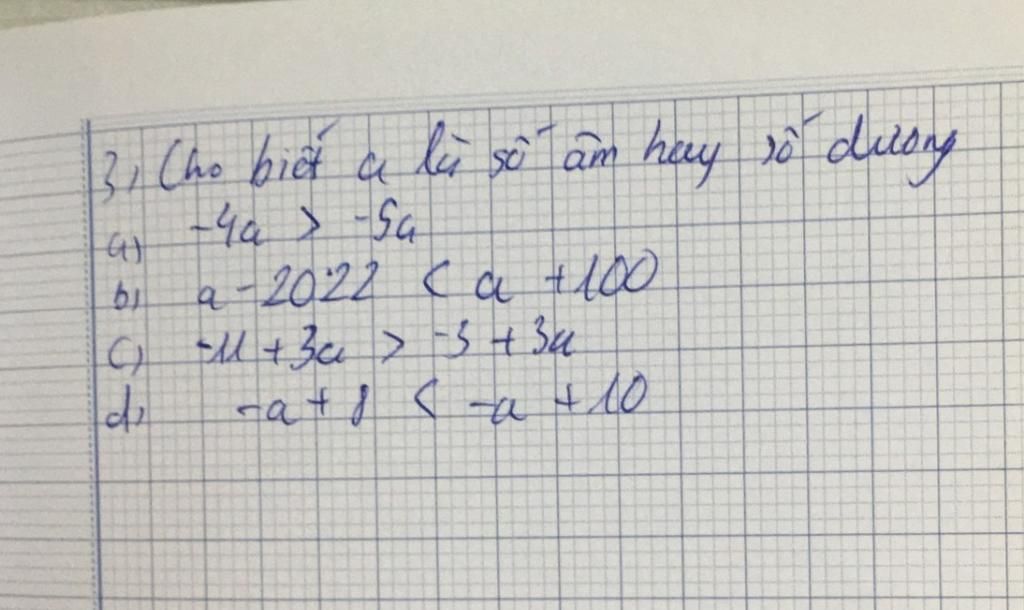 3, Cho biết a là số âm hay số dương
a) -4a > -5a
b) a - 2022 < a + 100
c) -11 + 3a > -3 + 3a
d) -a + 8 < -a + 10